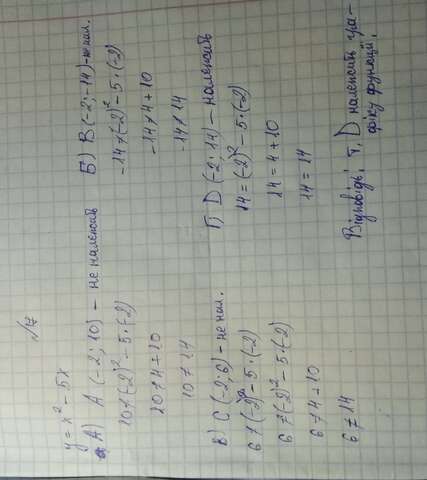 y = x² - 5x
А) A (-2; 10) - не належить
10 ≠ (-2)² - 5·(-2)
10 ≠ 4 + 10
10 ≠ 14
Б) B (-2; -14) - не нал.
-14 ≠ (-2)² - 5·(-2)
-14 ≠ 4 + 10
-14 ≠ 14
В) C (-2; 6) - не нал.
6 ≠ (-2)² - 5·(-2)
6 ≠ (-2)² - 5·(-2)
6 ≠ 4 + 10
6 ≠ 14
Г) D (-2; 14) - належить
14 = (-2)² - 5·(-2)
14 = 4 + 10
14 = 14
Відповідь: т. D належить гра-
фіку функції.